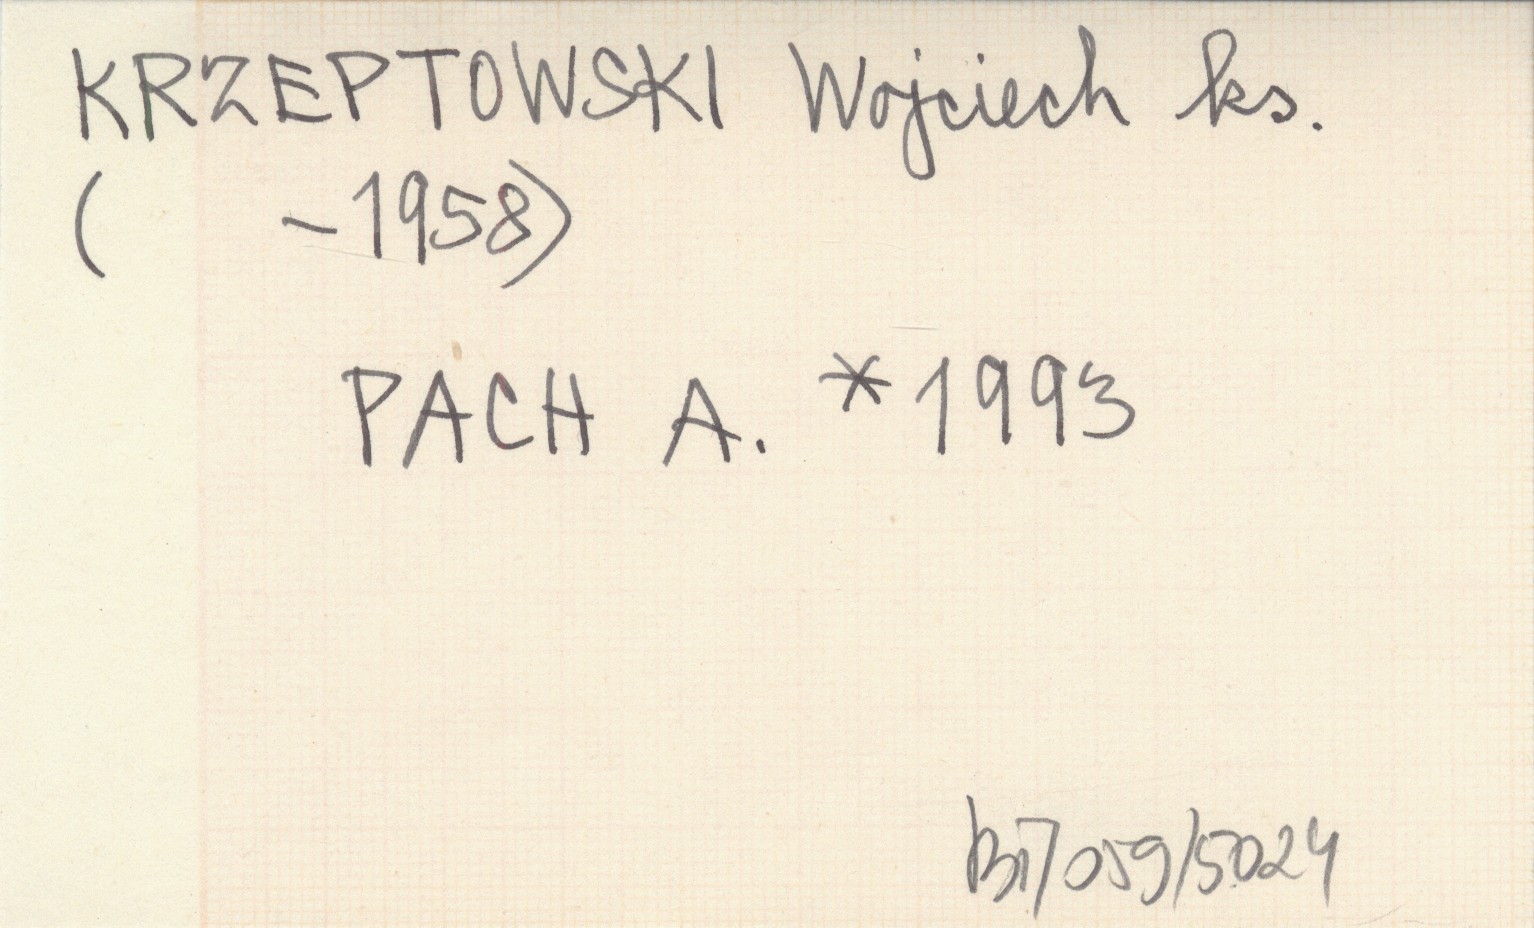 KRZEPTOWSKI Wojciech ks.
( -1958)
PACH A. *1993
059/5024